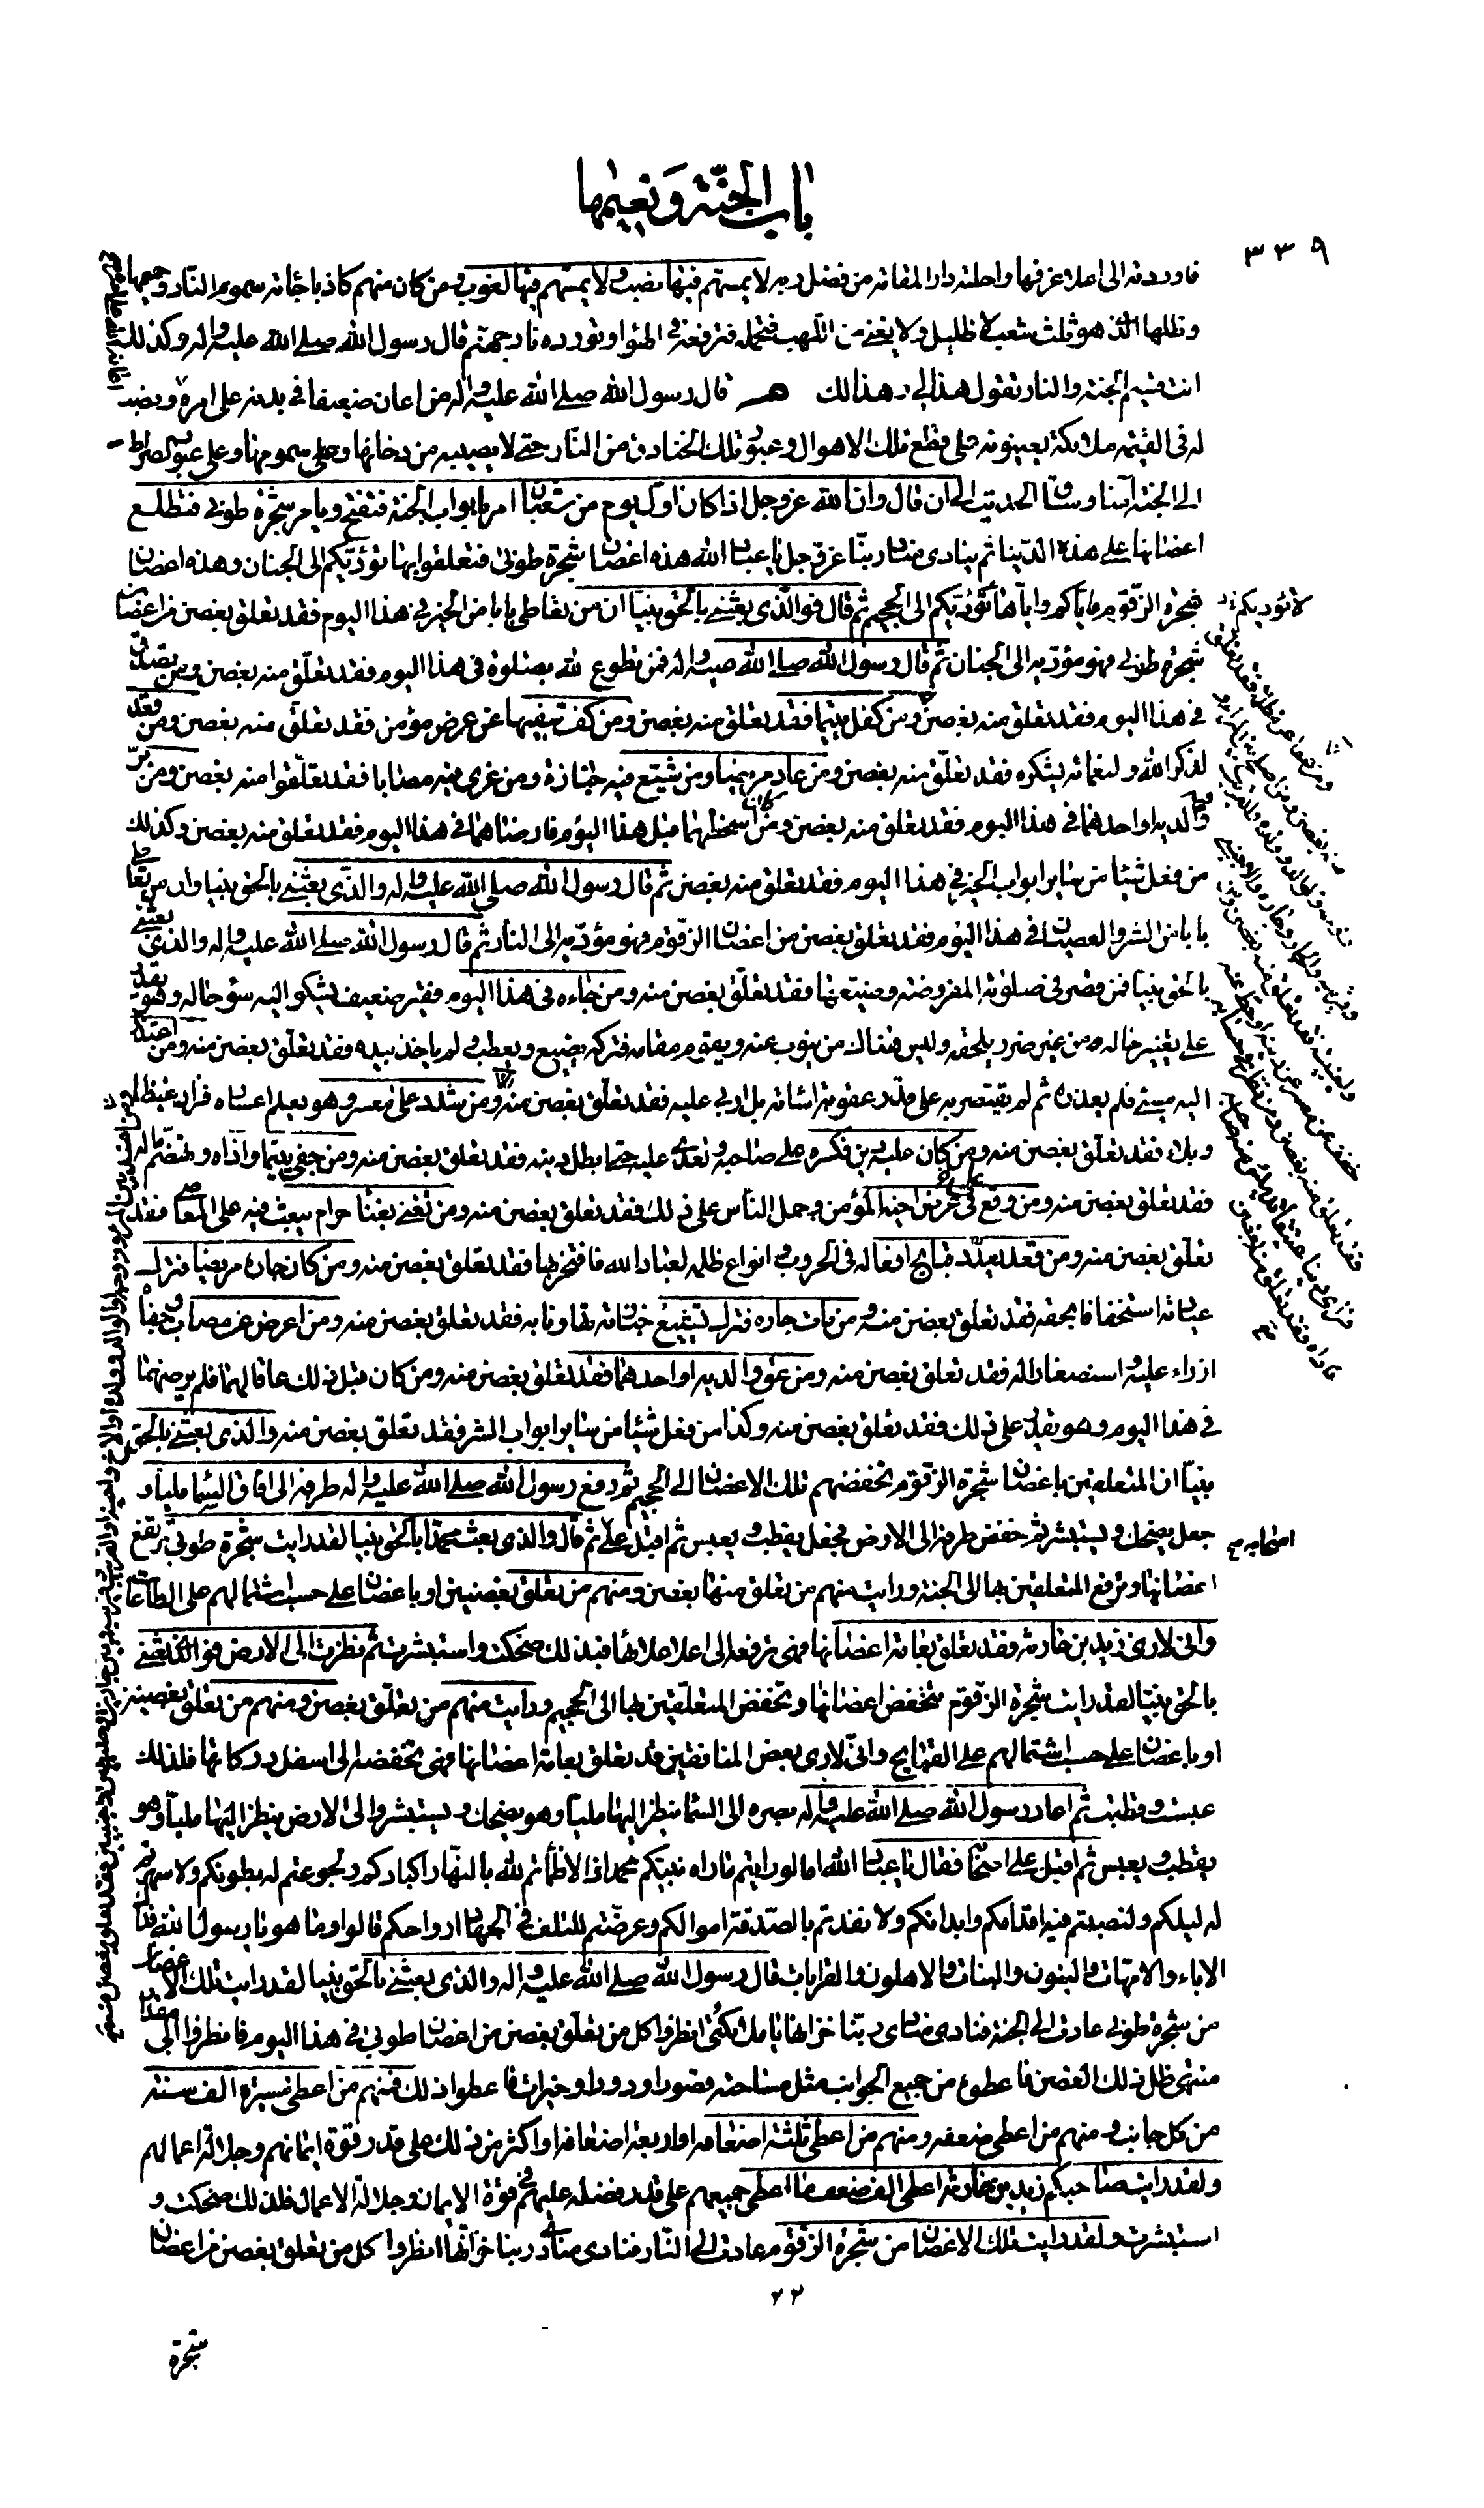 باب الجنّة ونعيمها
٣٣٩
فاوردته الى اعلا غرفها واحلته دار المقامة من فضل ربه لا يمسهم فيها نصب ولا يمسهم فيها لغوب ومن كان منهم كاذبا جائته سموم النار وحميمها
وظلها الذى هو ثلث شعب لا ظليل ولا يغنى من اللهب فتحمله فترفعه فى الهواء وتورده نار جهنم قال رسول الله صلى الله عليه واله وكذلك
انت قسيم الجنة والنار تقول هذا لى وهذا لك قال رسول الله صلى الله عليه واله من اعان ضعيفا فى بدنه على امره ونصب
له فى القيمة ملائكة يعينونه على قطع تلك الاهوال وعبور تلك الخنادق من النار حتى لا يصيبه من دخانها وعلى سمومها وعلى عبور الصراط
الى الجنة آمنا وساق الحديث الى ان قال وان الله عز وجل اذا كان اول يوم من شعبان امر بابواب الجنة فتفتح ويامر شجرة طوبى فتطلع
اعضانها على هذه الدنيا ثم ينادى منادى ربنا عز وجل يا عباد الله هذه اغصان شجرة طوبى فتعلقوا بها تؤديكم الى الجنان وهذه اغصان
شجرة الزقوم فاياكم واياها تؤديكم الى الجحيم ثم قال فوالذى بعثنى بالحق نبيا ان من تعاطى بابا من الخير فى هذا اليوم فقد تعلق بغصن من اغصان
شجرة طوبى فهو مؤديه الى الجنان ثم قال رسول الله صلى الله عليه واله فمن تطوع لله بصلوة فى هذا اليوم فقد تعلق منه بغصن ومن تصدق
فى هذا اليوم فقد تعلق منه بغصن ومن كفل يتيما فقد تعلق منه بغصن ومن كف سفيها عن عرض مؤمن فقد تعلق منه بغصن ومن قعد
لذكر الله ولنعمائه يشكره فقد تعلق منه بغصن ومن عاد مريضا ومن شيع فيه جنازة ومن عزى فيه مصابا فقد تعلقوا منه بغصن ومن برّ
والديه او احدهما فى هذا اليوم فقد تعلق منه بغصن ومن كان اسخطهما قبل هذا اليوم فارضاهما فى هذا اليوم فقد تعلق منه بغصن وكذلك
من فعل شيئا من سائر ابواب الخير فى هذا اليوم فقد تعلق منه بغصن ثم قال رسول الله صلى الله عليه واله والذى بعثنى بالحق نبيا وان من تعاطى
بابا من الشر والعصيان فى هذا اليوم فقد تعلق بغصن من اغصان الزقوم فهو مؤديه الى النار ثم قال رسول الله صلى الله عليه واله والذى بعثنى
بالحق نبيا فمن قصر فى صلوته المفروضة وضيعها فقد تعلق بغصن منه ومن جاءه فى هذا اليوم فقير ضعيف يشكو اليه سوء حاله وهو يقدر
على تغيير حاله من غير ضرر يلحقه وليس هناك من ينوب عنه ويقوم مقامه فتركه يضيع ويعطب ولم ياخذ بيده فقد تعلق بغصن منه ومن اعتذر
اليه مسىء فلم يعذره ثم لم يقتصر به على قدر عقوبة اسائته بل اربى عليه فقد تعلق بغصن منه ومن شدد على معسر وهو يعلم اعساره فزاد غيظا
وبلاء فقد تعلق بغصن منه ومن كان عليه دين فكسره على صاحبه وتعدى عليه حتى ابطل دينه فقد تعلق بغصن منه ومن جفى يتيما واذاه وتهضم ماله
فقد تعلق بغصن منه ومن وقع فى عرض اخيه المؤمن وحمل الناس على ذلك فقد تعلق بغصن منه ومن تغنى بغناء حرام يبعث فيه على المعاصى فقد
تعلق بغصن منه ومن قعد يعدد قبائح افعاله فى الحروب وانواع ظلمه لعباد الله فافتخر بها فقد تعلق بغصن منه ومن كان جاره مريضا فترك
عيادته استخفافا بحقه فقد تعلق بغصن منه ومن مات جاره فترك تشييع جنازته تهاونا به فقد تعلق بغصن منه ومن اعرض عن مصاب وجفاه
ازراء عليه استصغارا له فقد تعلق بغصن منه ومن عق والديه او احدهما فقد تعلق بغصن منه ومن كان قبل ذلك عاقا لهما فلم يرضهما
فى هذا اليوم وهو يقدر على ذلك فقد تعلق بغصن منه وكذا من فعل شيئا من سائر ابواب الشر فقد تعلق بغصن منه والذى بعثنى بالحق
نبيا ان المتعلقين باغصان شجرة الزقوم تخفضهم تلك الاغصان الى الجحيم ثم رفع رسول الله صلى الله عليه واله طرفه الى افاق السماء مليا و
جعل يضحك ويستبشر ثم خفض طرفه الى الارض فجعل يقطب ويعبس ثم اقبل على ثم قال والذى بعث محمدا بالحق نبيا لقد رايت شجرة طوبى ترتفع
اغصانها وترفع المتعلقين بها الى الجنة ورايت منهم من تعلق منها بغصن ومنهم من تعلق بغصنين او باغصان على حسب اشتمالهم على الطاعات
وانى لارى زيد بن حارثه فقد تعلق بعامة اغصانها فهى ترفعه الى اعلا علائها فبذلك ضحكت واستبشرت ثم نظرت الى الارض فوالذى بعثنى
بالحق نبيا لقد رايت شجرة الزقوم تنخفض اغصانها وتخفض المتعلقين بها الى الجحيم ورايت منهم من تعلق بغصن ومنهم من تعلق بغصنين
او باغصان على حسب اشتمالهم على القبايح وانى لارى بعض المنافقين قد تعلق بعامة اغصانها فهى تخفضه الى اسفل دركاتها فلذلك
عبست وقطبت ثم اعاد رسول الله صلى الله عليه واله بصره الى السماء ينظر اليها مليا وهو يضحك ويستبشر والى الارض ينظر اليها مليا وهو
يقطب ويعبس ثم اقبل على اصحابه فقال يا عباد الله اما لو رايتم ما راه نبيكم محمد اذا لاظمأتم لله بالنهار اكبادكم ولجوعتم له بطونكم ولاسهرتم
له ليلكم ولنصبتم فيه اقدامكم وابدانكم ولانفدتم بالصدقة اموالكم وعرضتم للتلف فى الجهاد ارواحكم قالوا وما هو يا رسول الله فداك
الاباء والامهات والبنون والبنات والاهلون والقرابات قال رسول الله صلى الله عليه واله والذى بعثنى بالحق نبيا لقد رايت تلك الاغصان
من شجرة طوبى عادت الى الجنة فنادى منادى ربنا خزانها يا ملائكتى انظروا كل من تعلق بغصن من اغصان طوبى فى هذا اليوم فانظروا الى مقدار
منتهى ظل ذلك الغصن فاعطوه من جميع الجوانب مثل مساحته قصورا ودورا وخيرات فاعطوا ذلك فمنهم من اعطى مسيرة الف سنة
من كل جانب ومنهم من اعطى ضعفه ومنهم من اعطى ثلثة اضعافه او اربعة اضعافه او اكثر من ذلك على قدر قوة ايمانهم وجلالة اعمالهم
ولقد رايت صاحبكم زيد بن حارثة اعطى الف ضعف ما اعطى جميعهم على قدر فضله عليهم فى قوة الايمان وجلالة الاعمال فلذلك ضحكت و
استبشرت ولقد رايت تلك الاغصان من شجرة الزقوم عادت الى النار فنادى منادى ربنا خزانها انظروا كل من تعلق بغصن من اغصان
٢٢
شجرة